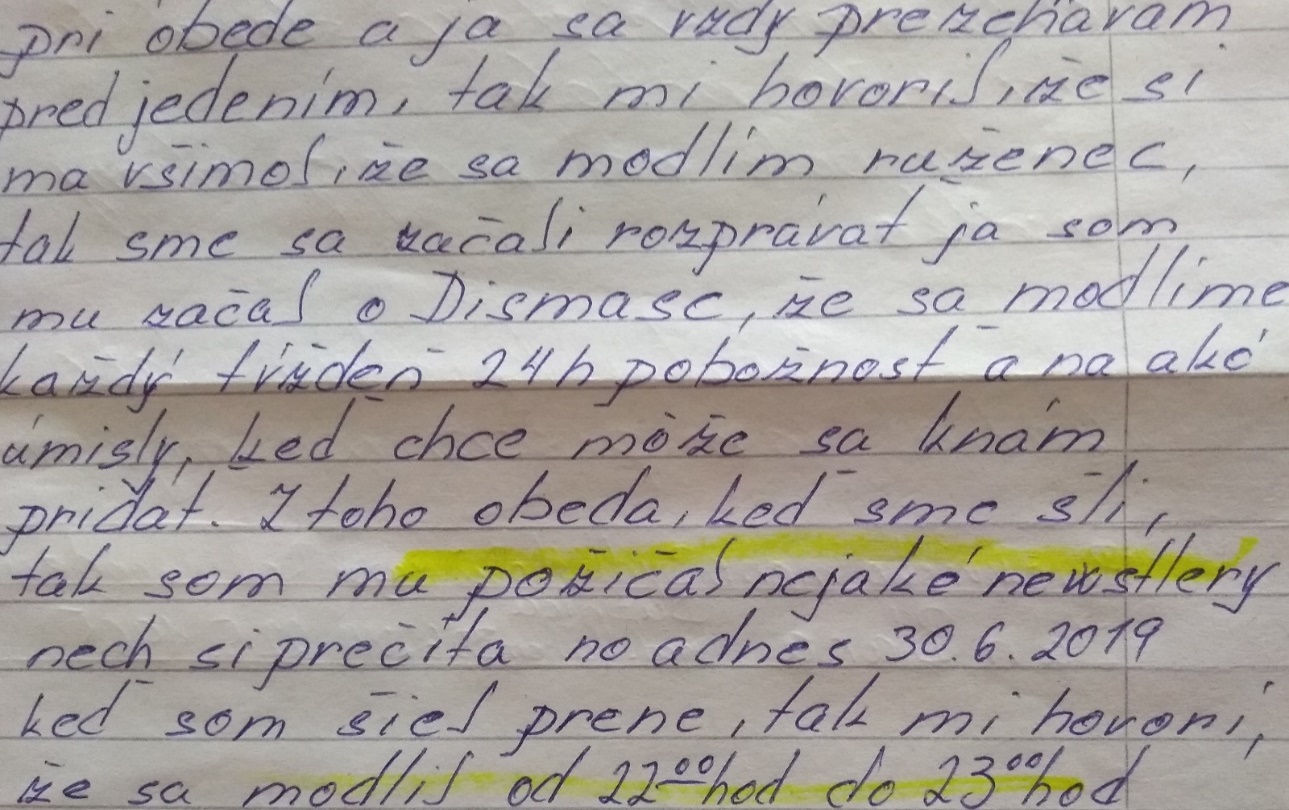 pri obede a ja sa vzdy prezehávam
pred jedením, tak mi hovoril, že si
ma všimol, že sa modlím ruženec,
tak sme sa začali rozprávat ja som
mu začal o Dismase, že sa modlíme
každý tížden 24h pobožnost a na aké
úmisly, ked chce môže sa knám
pridat. Z toho obeda, ked sme šli,
tak som mu požičal nejaké newstlery
nech si prečíta no adnes 30.6.2019
ked som šiel prene, tak mi hovorí,
že sa modlil od 22⁰⁰hod do 23⁰⁰hod